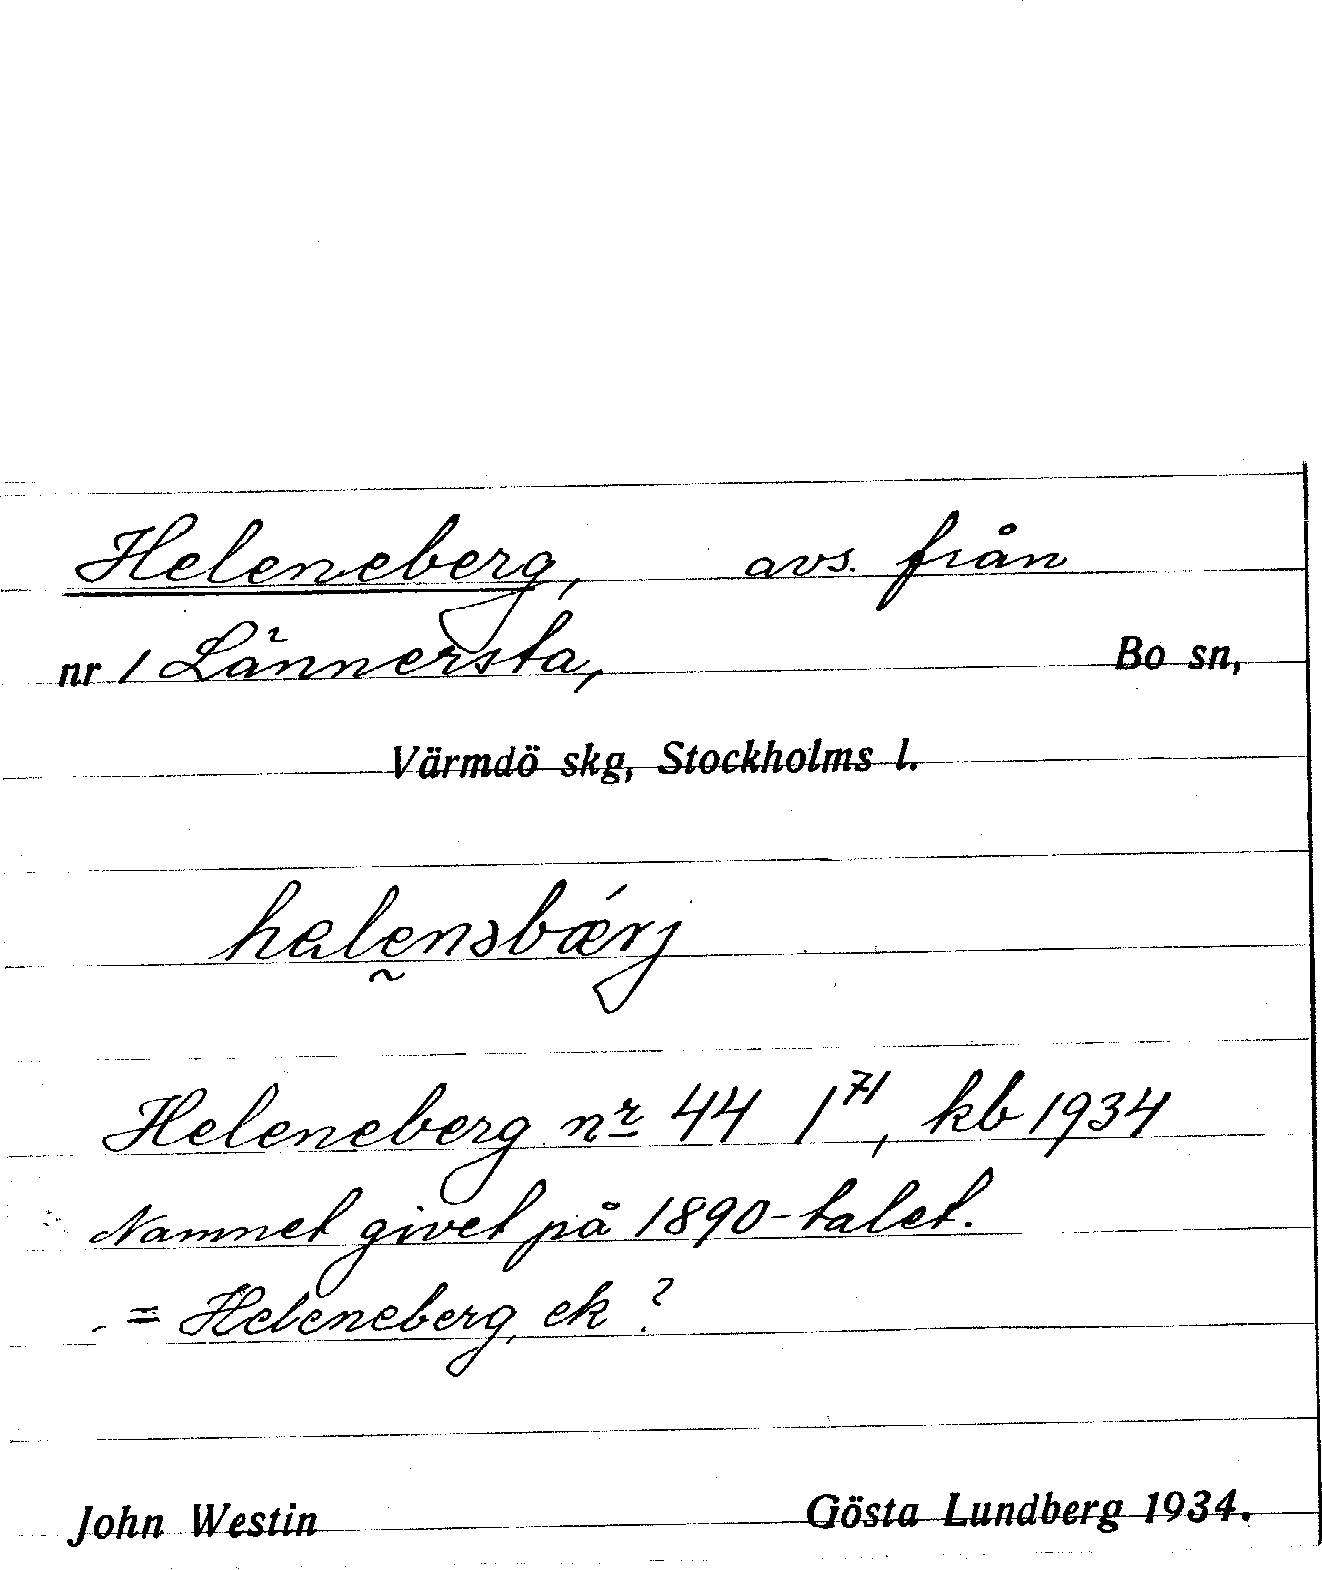 Heleneberg, avs. från
nr 1 Lännersta, Bo sn,
Värmdö skg, Stockholms l.
helenəbǽrj
Heleneberg nr 44 1⁷¹, kb 1934
Namnet givet på 1890-talet.
= Heleneberg, ek ?
John Westin Gösta Lundberg 1934.